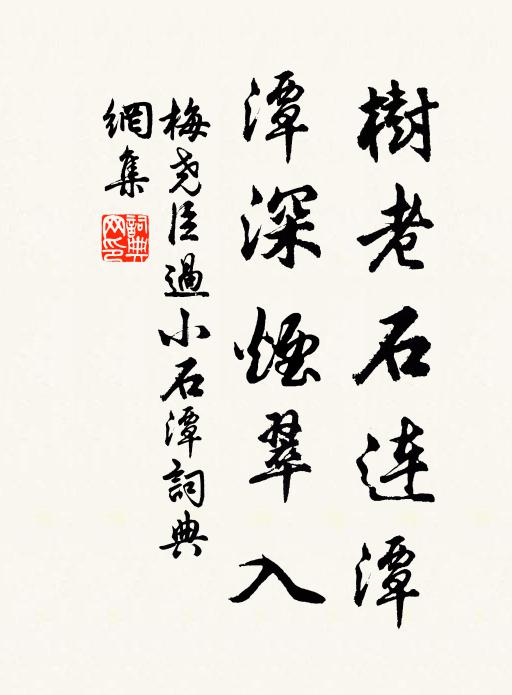 樹老石连潭
潭深煙翠入
梅尧臣過小石潭詞典
網集
詞典
网印